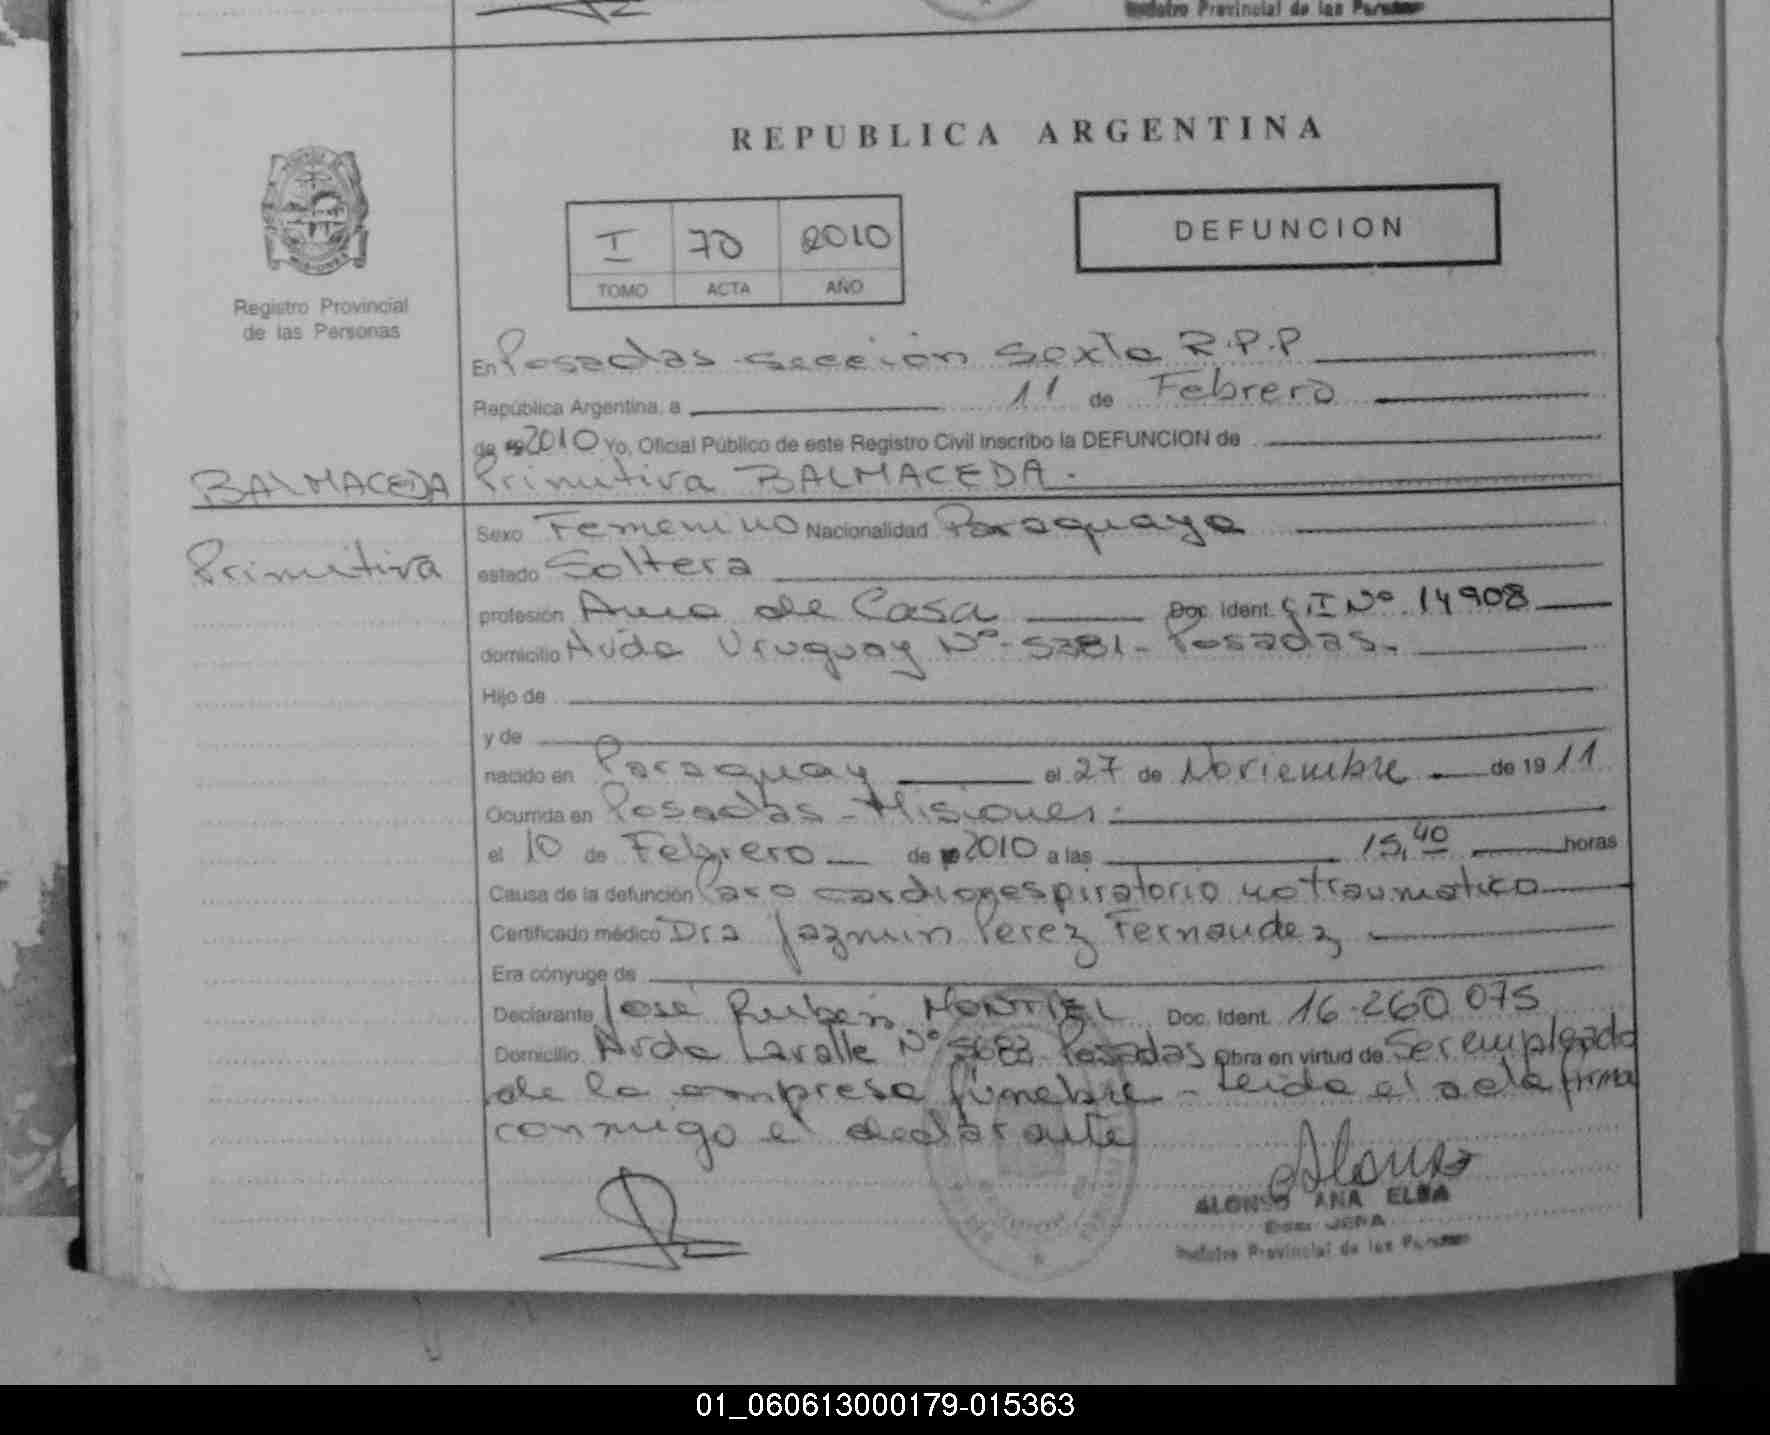 Registro Provincial de las Personas
REPUBLICA ARGENTINA
I 70 2010
TOMO ACTA AÑO
DEFUNCION
Registro Provincial
de las Personas
En Posadas - sección Sexta R.P.P
República Argentina, a 11 de Febrero
de 2010 Yo, Oficial Público de este Registro Civil inscribo la DEFUNCION de
BALMACEDA Primitiva BALMACEDA.
Sexo Femenino Nacionalidad Paraguaya
Primitiva estado Soltera
profesión Ama de Casa Doc. Ident. C.I Nº 14908
domicilio Avda Uruguay Nº 5381 - Posadas.
Hijo de
y de
nacido en Paraguay el 27 de Noviembre de 1911
Ocurrida en Posadas - Misiones.
el 10 de Febrero de 2010 a las 15,40 horas
Causa de la defunción Paro cardiorespiratorio no traumatico
Certificado médico Dra Jazmin Perez Fernandez
Era cónyuge de
Declarante José Ruben MONTIEL Doc. Ident. 16.260 075
Domicilio Avda Lavalle Nº 5683 Posadas Obra en virtud de Ser empleado
de la empresa fúnebre - Leida el acta firma
conmigo el declarante
Alonso
ALONSO ANA ELBA
Registro Provincial de las Personas
01_060613000179-015363